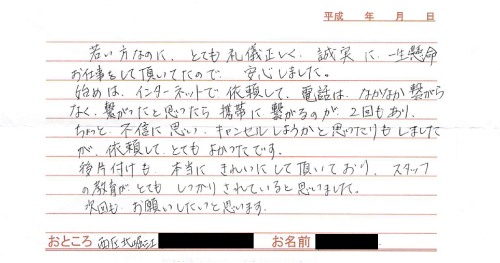 平成 年 月 日
若い方なのに、とても礼儀正しく、誠実に、一生懸命
お仕事をして頂いてたので、安心しました。
始めは、インターネットで依頼して、電話は、なかなか繋がら
なく、繋がったと思ったら携帯に繋がるのが、2回もあり、
ちょっと、不信に思い、キャンセルしようかと思ったりもしました
が、依頼して、とてもよかったです。
後片付けも、本当にきれいにして頂いており、スタッフ
の教育が、とてもしっかりされていると思いました。
次回も、お願いしたいと思います。
おところ 西区北堀江 お名前